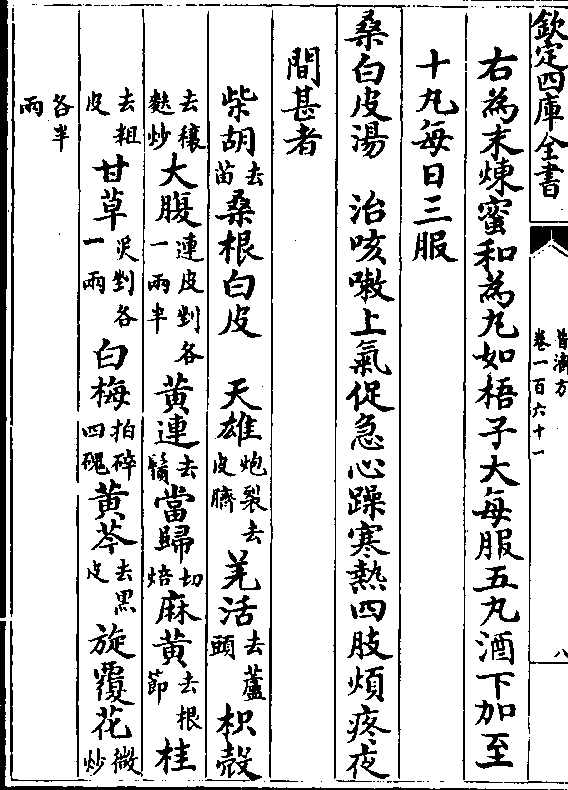 欽定四庫全書
普濟方
卷一百六十一
八
右為末煉蜜和為丸如梧子大每服五丸酒下加至
十丸每日三服
桑白皮湯　治咳嗽上氣促急心躁寒熱四肢煩疼夜
間甚者
柴胡去苗桑根白皮　天雄炮裂去皮臍　羌活去蘆頭　枳殼
去穰麩炒大腹連皮剉各一兩半　黃連去鬚當歸切焙麻黃去根節桂
去粗皮甘草炙剉各一兩　白梅拍碎四磈黃芩去黑皮　旋覆花微炒
各半兩